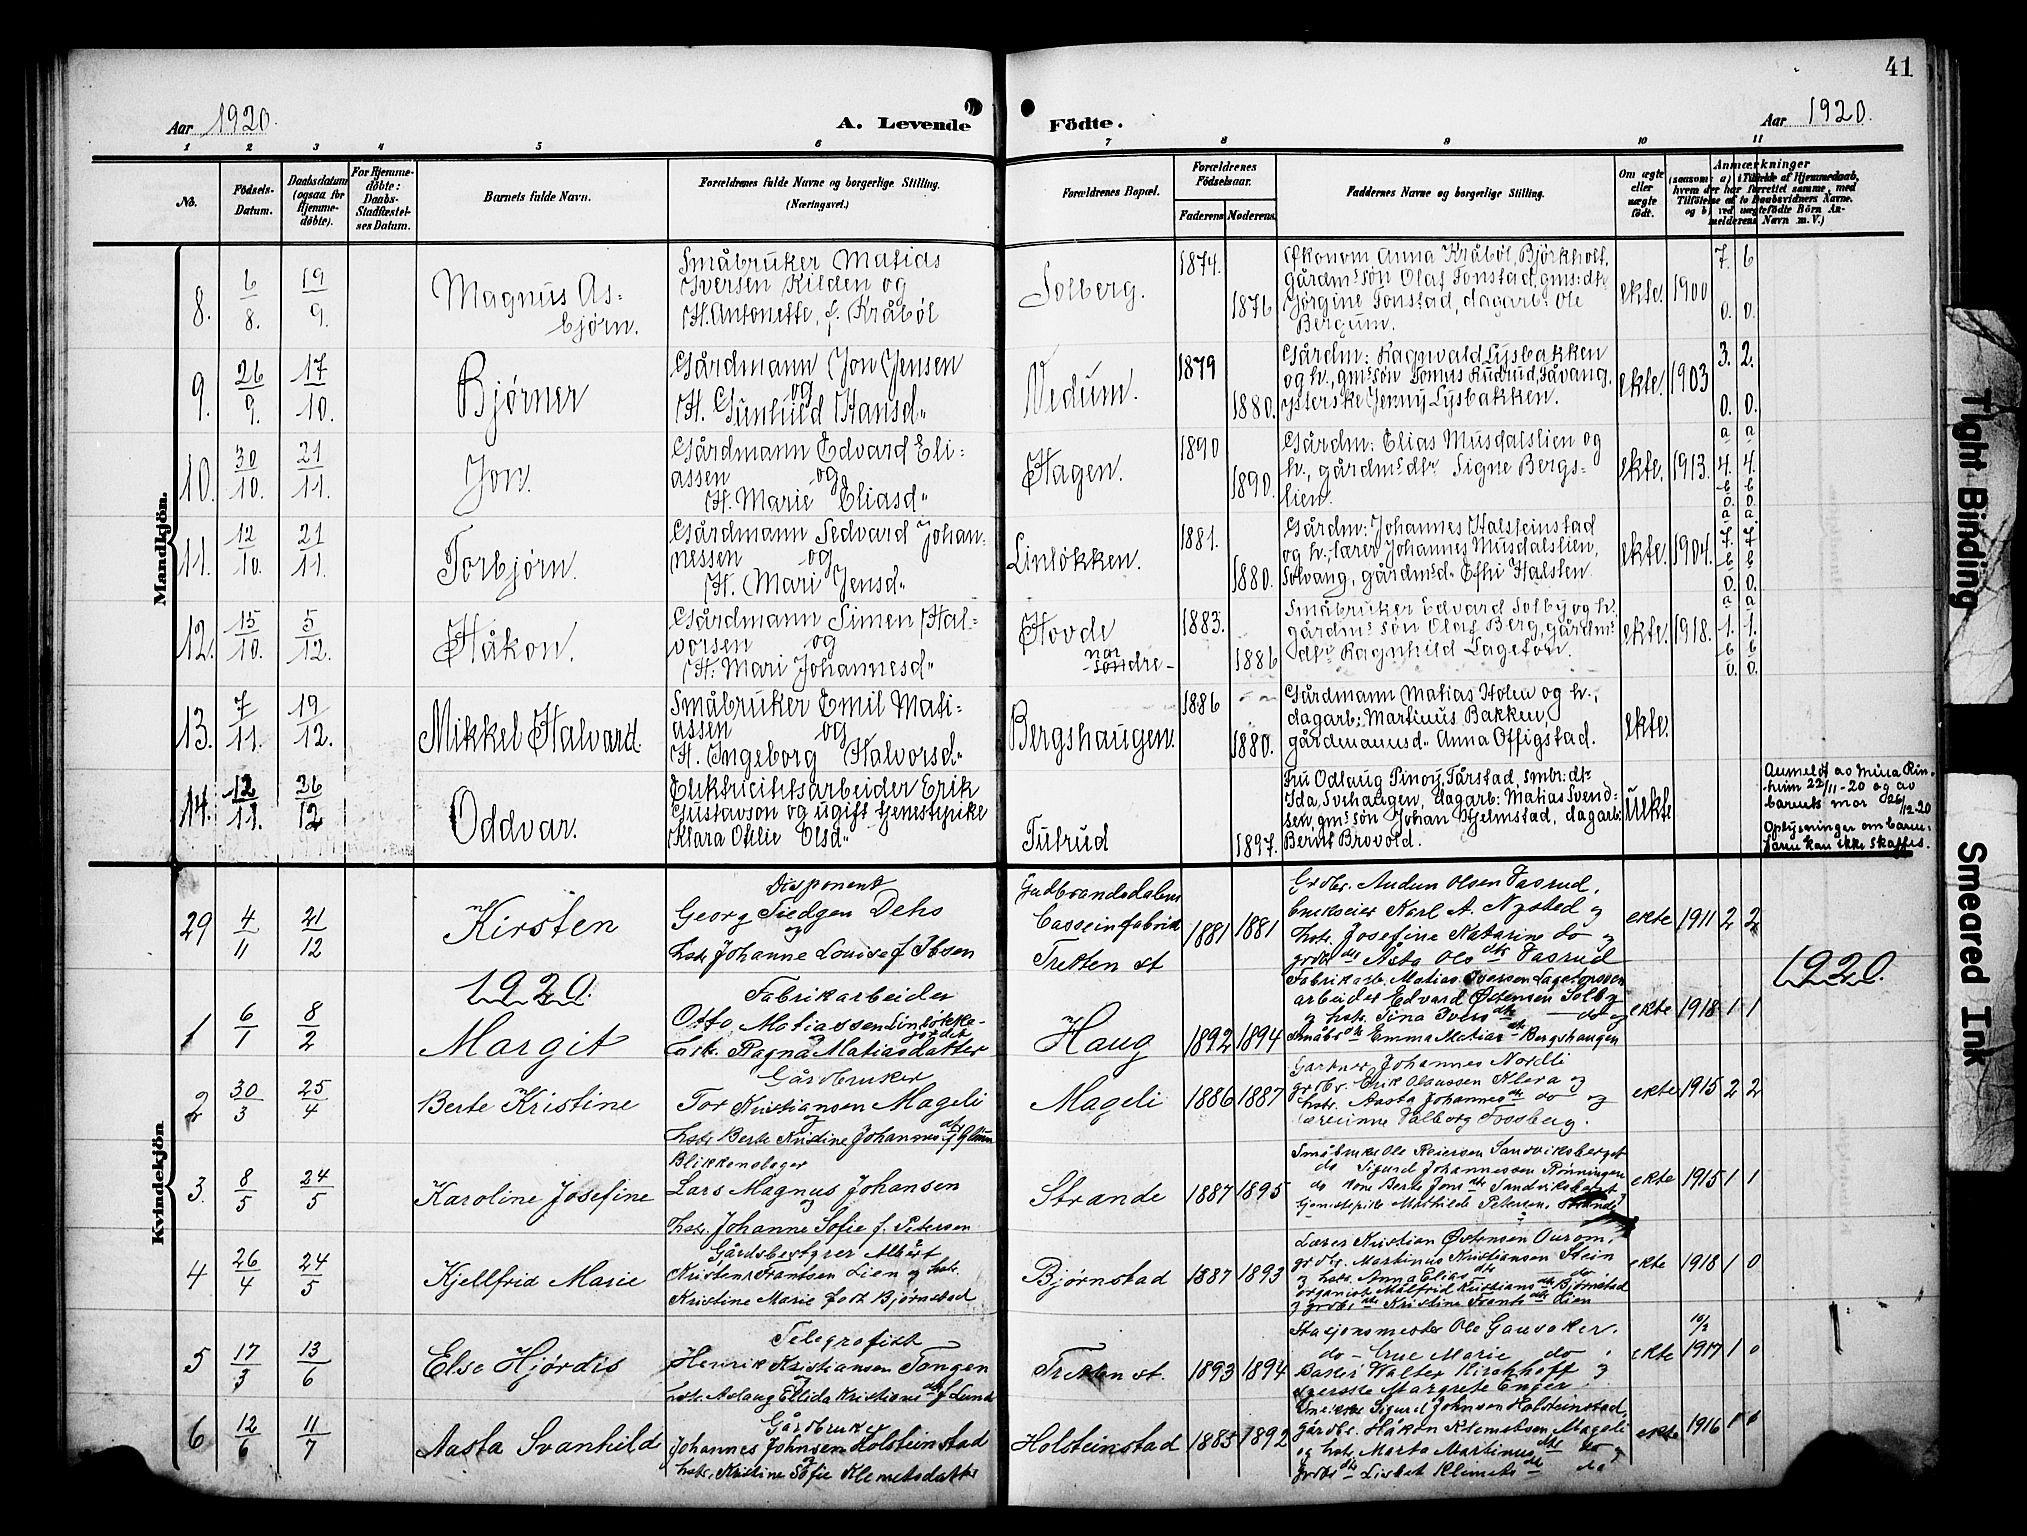 41
Aar 1920. A. Levende Födte. Aar 1920.
1 2 3 4 5 6 7 8 9 10 11
No.
Födsels-
Datum.
Daabsdatum
(ogsaa for
Hjemme-
döbte).
For Hjemme-
döbte:
Daabs-
Stadfæstel-
ses Datum.
Barnets fulde Navn.
Forældrenes fulde Navne og borgerlige Stilling.
(Næringsvei.)
Forældrenes Bopæl.
Forældrenes
Födselsaar.
Faderens
Moderens.
Faddernes Navne og borgerlige Stilling.
Om ægte
eller
uægte
födt.
Anmærkninger
(saasom: a) i Tilfælde af Hjemmedaab,
hvem der har forrettet samme, med
Tilföielse af to Daabsvidners Navne.
og b) ved uægtefödte Börn An-
melderens Navn m. V.)
Mandkjön.
8. 6/8. 19/9.
Magnus As-
bjørn.
Småbruker Matias
Iversen Kilden og
H. Antonette, f. Kråbøl
Solberg.
1874.
1876
Økonom Anna Kråbøl, Björkholt,
gårdms. søn Olaf Tonstad, gms: dtr.
Jørgine Tonstad, dagarb. Ole
Bergum.
ekte. 1900 7. 6
0. 0.
9. 26/9. 17/10.
Bjørner
Gårdmann Jon Jensen
og
H. Gunhild Hansd"
Vedum.
1879
1880.
Gårdm: Ragnvald Lysbakken
og h., gms. søn Tomas Rudrud, Fåvang,
ysterske Jenny Lysbakken.
ekte. 1903 3. 2.
0. 0.
10. 30/10. 21/11.
Jon.
Gårdmann Edvard Eli-
assen og
H. Marie Eliasd"
Hagen.
1890
1890.
Gårdm: Elias Musdalslien og
h., gårdms. dtr Signe Bergs-
lien.
ekte. 1913. a a
4. 4.
b b
0. 0.
11. 12/10. 21/11.
Torbjørn.
Gårdmann Sedvard Johan-
nessen og
H. Mari Jensd"
Linløkken.
1881.
1880.
Gårdm: Johannes Halsteinstad
og h., lærer Johannes Musdalslien,
Solvang, gårdmsd"
ekte. 1904. a a
7. 7
b b
0. 0.
12. 15/10. 5/12.
Håkon.
Gårdmann Simen Hal-
vorsen og
H. Mari Johannesd"
Hovde
nor
-søndre-
1883.
1886
Småbruker Edvard Solby og h.
gårdms. søn Olaf Berg, gårdms.
dtr Ragnhild
ekte. 1918. a a
1. 1.
b b
0. 0.
13. 7/11. 19/12.
Mikkel Halvard.
Småbruker Emil Mati-
assen og
H. Ingeborg Halvorsd"
Bergshaugen.
1886
1880.
Gårdmann Matias Holen og h.,
dagarb: Martinus Bakken,
gårdmannsd" Anna Offigstad.
ekte.
14. 12/11. 26/12
Oddvar.
Elektricitetsarbeider Erik
Gustavson og ugift tjenestepike
Klara Otilie Olsd"
Tutrud
1897.
Fru Odlaug Tårstad, smbr: dtr
Ida Svehaugen, dagarb: Matias Svend-
sen, gms. søn Johan Hjelmstad, dagarb:
Bernt Brovold.
uekte
Anmeldt av Mina Rin-
heim 22/11-20 og av
barnets mor 26/12 20
Oplysninger om barne-
faren kan ikke skaffes.
29 4/11 21/12
Kirsten
Disponent
Georg Tiedgen Dehs
og
hstr. Johanne Louise f. Ibsen
Gudbrandsdalens
Casseinfabrik
Tretten st
1881 1881
Grdbr. Audun Olsen Vasrud,
brukseier Karl A. Nysted og
hstr. Josefine Natarine do og
grdbr ds Asta Ols dtr Vasrud
ekte 1911 2 2
1920. 1920.
Kvindekjön
1 6/1 8/2
Margit
Fabrikarbeider
Otto Matiassen Linløkke-
jordet
hstr. Ragna Matiasdatter
Haug
1892 1894
Fabrikarb. Matias Iversen
arbeider Edvard Østensen Solby
og hstr. Tina Ivers dtr do og
småbr dtr Emma Matias dtr Bergshaugen
ekte 1918 1 1
2 30/3 25/4
Berte Kristine
Gårdbruker
Tor Kristiansen Mageli
og
hstr Berte Kristine Johannes dtr f
Mageli
1886 1887
Gartner Johannes Nordli
grdbr. Erik Olaussen Klera og
hstr. Aasta Johannes dtr do og
lærerinne Valborg Fossberg.
ekte 1915 2 2
3. 8/5 24/5
Karoline Josefine
Blikkenslager
Lars Magnus Johansen
og
hstr. Johanne Sofie f. Petersen
Strande
1887 1895
Småbruker Ole Reiersen Sandviksberget
do Sigurd Johannessen Rønningen
do kone Berte Jons dtr
tjenestepike Mathilde Petersen, Strande
ekte 1915 1 1
4 26/4 24/5
Kjellfrid Marie
Gårdsbestyrer Albert
Kristen Frantsen Lien og hstr.
Kristine Marie født Bjørnstad
Bjørnstad
1887 1893
Lærer Kristian Østensen
grdbr. Martinus Kristiansen Stein
og hstr. Anna Elias dtr do
organist Målfrid Kristians dtr Bjørnstad
og grdbr dtr Kristine Frants dtr Lien
ekte 1918 1 0
5 17/3 13/6
Else Hjørdis
Telegrafist
Henrik Kristiansen Tangen
og
hstr. Aslaug Ellida Kristians dtr f. Lund
Tretten st.
1893 1894
Stasjonsmester Ole Gauvaker.
do - frue Marie do
Walter Kirchhoff og
Margrete Enger
ekte 10/2 1917 1 0
6 12/6 11/7
Aasta Svanhild
Gårdbruker
Johannes Johnsen Holsteinstad
og
hstr. Kristine Sofie Klemetsdatter
Holsteinstad
1885 1892
Sigurd Johnsen Holsteinstad
gårdbr. Håkon Klemetsen Mageli
og hstr. Marta Martinus dtr do og
grdbr dtr Lisbet Klemets dtr do
ekte 1916 1
Tight Binding
Smeared Ink